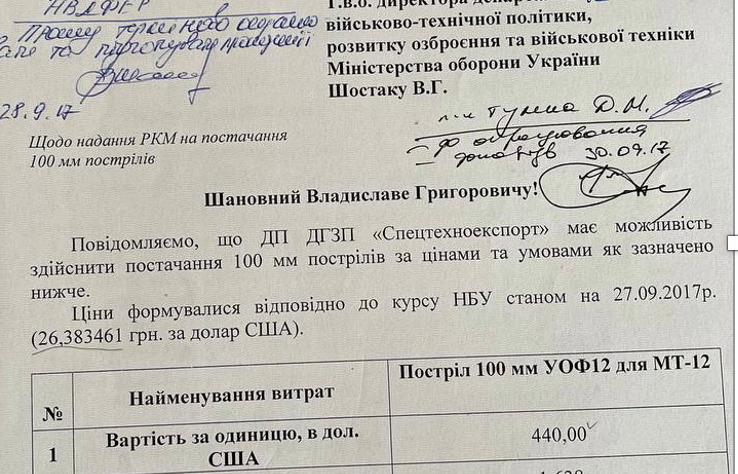 НВАФЕР
Прошу терміново опрацюва
та підготувати пропозиції
28.9.17
Т.в.о. директора депар
військово-технічної політики,
розвитку озброєння та військової техніки
Міністерства оборони України
Шостаку В.Г.
п-к Д.М.
до опрацювання
30.09.17
Щодо надання РКМ на постачання
100 мм пострілів
Шановний Владиславе Григоровичу!
Повідомляємо, що ДП ДГЗП «Спецтехноекспорт» має можливість
здійснити постачання 100 мм пострілів за цінами та умовами як зазначено
нижче.
Ціни формувалися відповідно до курсу НБУ станом на 27.09.2017р.
(26,383461 грн. за долар США).
№ Найменування витрат Постріл 100 мм УОФ12 для МТ-12
1 Вартість за одиницю, в дол. 440,00
США